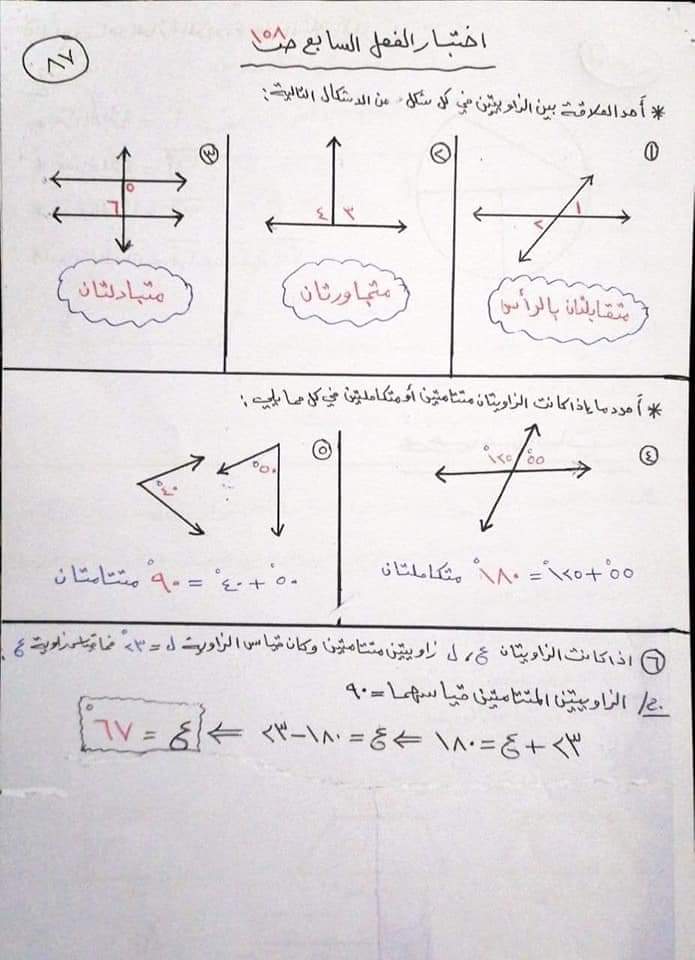 ٨٧
اختبار الفصل السابع ص ١٥٨
* أحدد العلاقة بين الزاويتين في كل شكل من الاشكال التالية:
١
١
٢
متقابلتان بالرأس
٢
٣
٤
متجاورتان
٣
٥
٦
متبادلتان
* أحدد ما إذا كانت الزاويتان متتامتين أو متكاملتين في كل مما يلي:
٤
٥٥° ١٢٥°
٥٥° + ١٢٥° = ١٨٠° متكاملتان
٥
٥٠°
٤٠°
٥٠° + ٤٠° = ٩٠° متتامتان
٦ اذا كانت الزاويتان ع، ل زاويتين متتامتين وكان قياس الزاوية ل = ٢٣° فما قياس زاوية ع.
ج/ الزاويتين المتتامتين قياسهما = ٩٠
٢٣ + ع = ١٨٠ ⇐ ع = ١٨٠ - ٢٣ ⇐ ع = ٦٧°